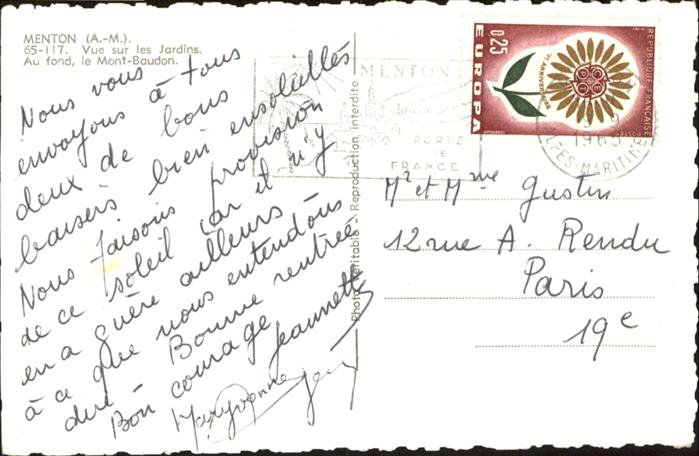 MENTON (A.-M.).
65-117. Vue sur les Jardins.
Au fond, le Mont-Baudon.
Nous vous
envoyons à tous
deux de bons
baisers bien ensoleillés
Nous faisons provision
de ce soleil car il n'y
en a guère ailleurs
à ce que nous entendons
dire. Bonne rentrée
Bon courage
Jeannette
Maryvonne
Photo véritable - Reproduction interdite
MENTON
PORTE
DE
FRANCE
0,25
EUROPA
REPUBLIQUE FRANÇAISE
POSTES
CEPT
1965
ALPES-MARITIMES
Mr et Mme Gustin
12 rue A. Rendu
Paris
19e